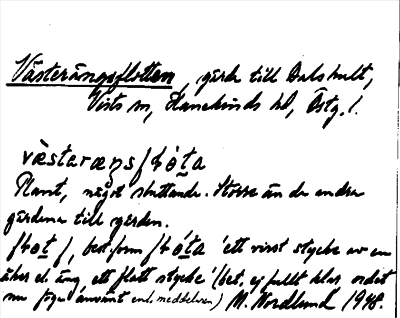 Västerängsflotten, gärde till Dalshult,
Vists sn, Hanekinds hd, Östg. l.
væ̀stəræŋsflóta
Plant, något sluttande. Större än de andra
gärdena till gården.
flot f, best. form flóta 'ett visst stycke av en
åker el. äng, ett flatt stycke' (bet. ej fullt klar, ordet
nu föga använt enl. meddelaren) M. Nordlund 1948.